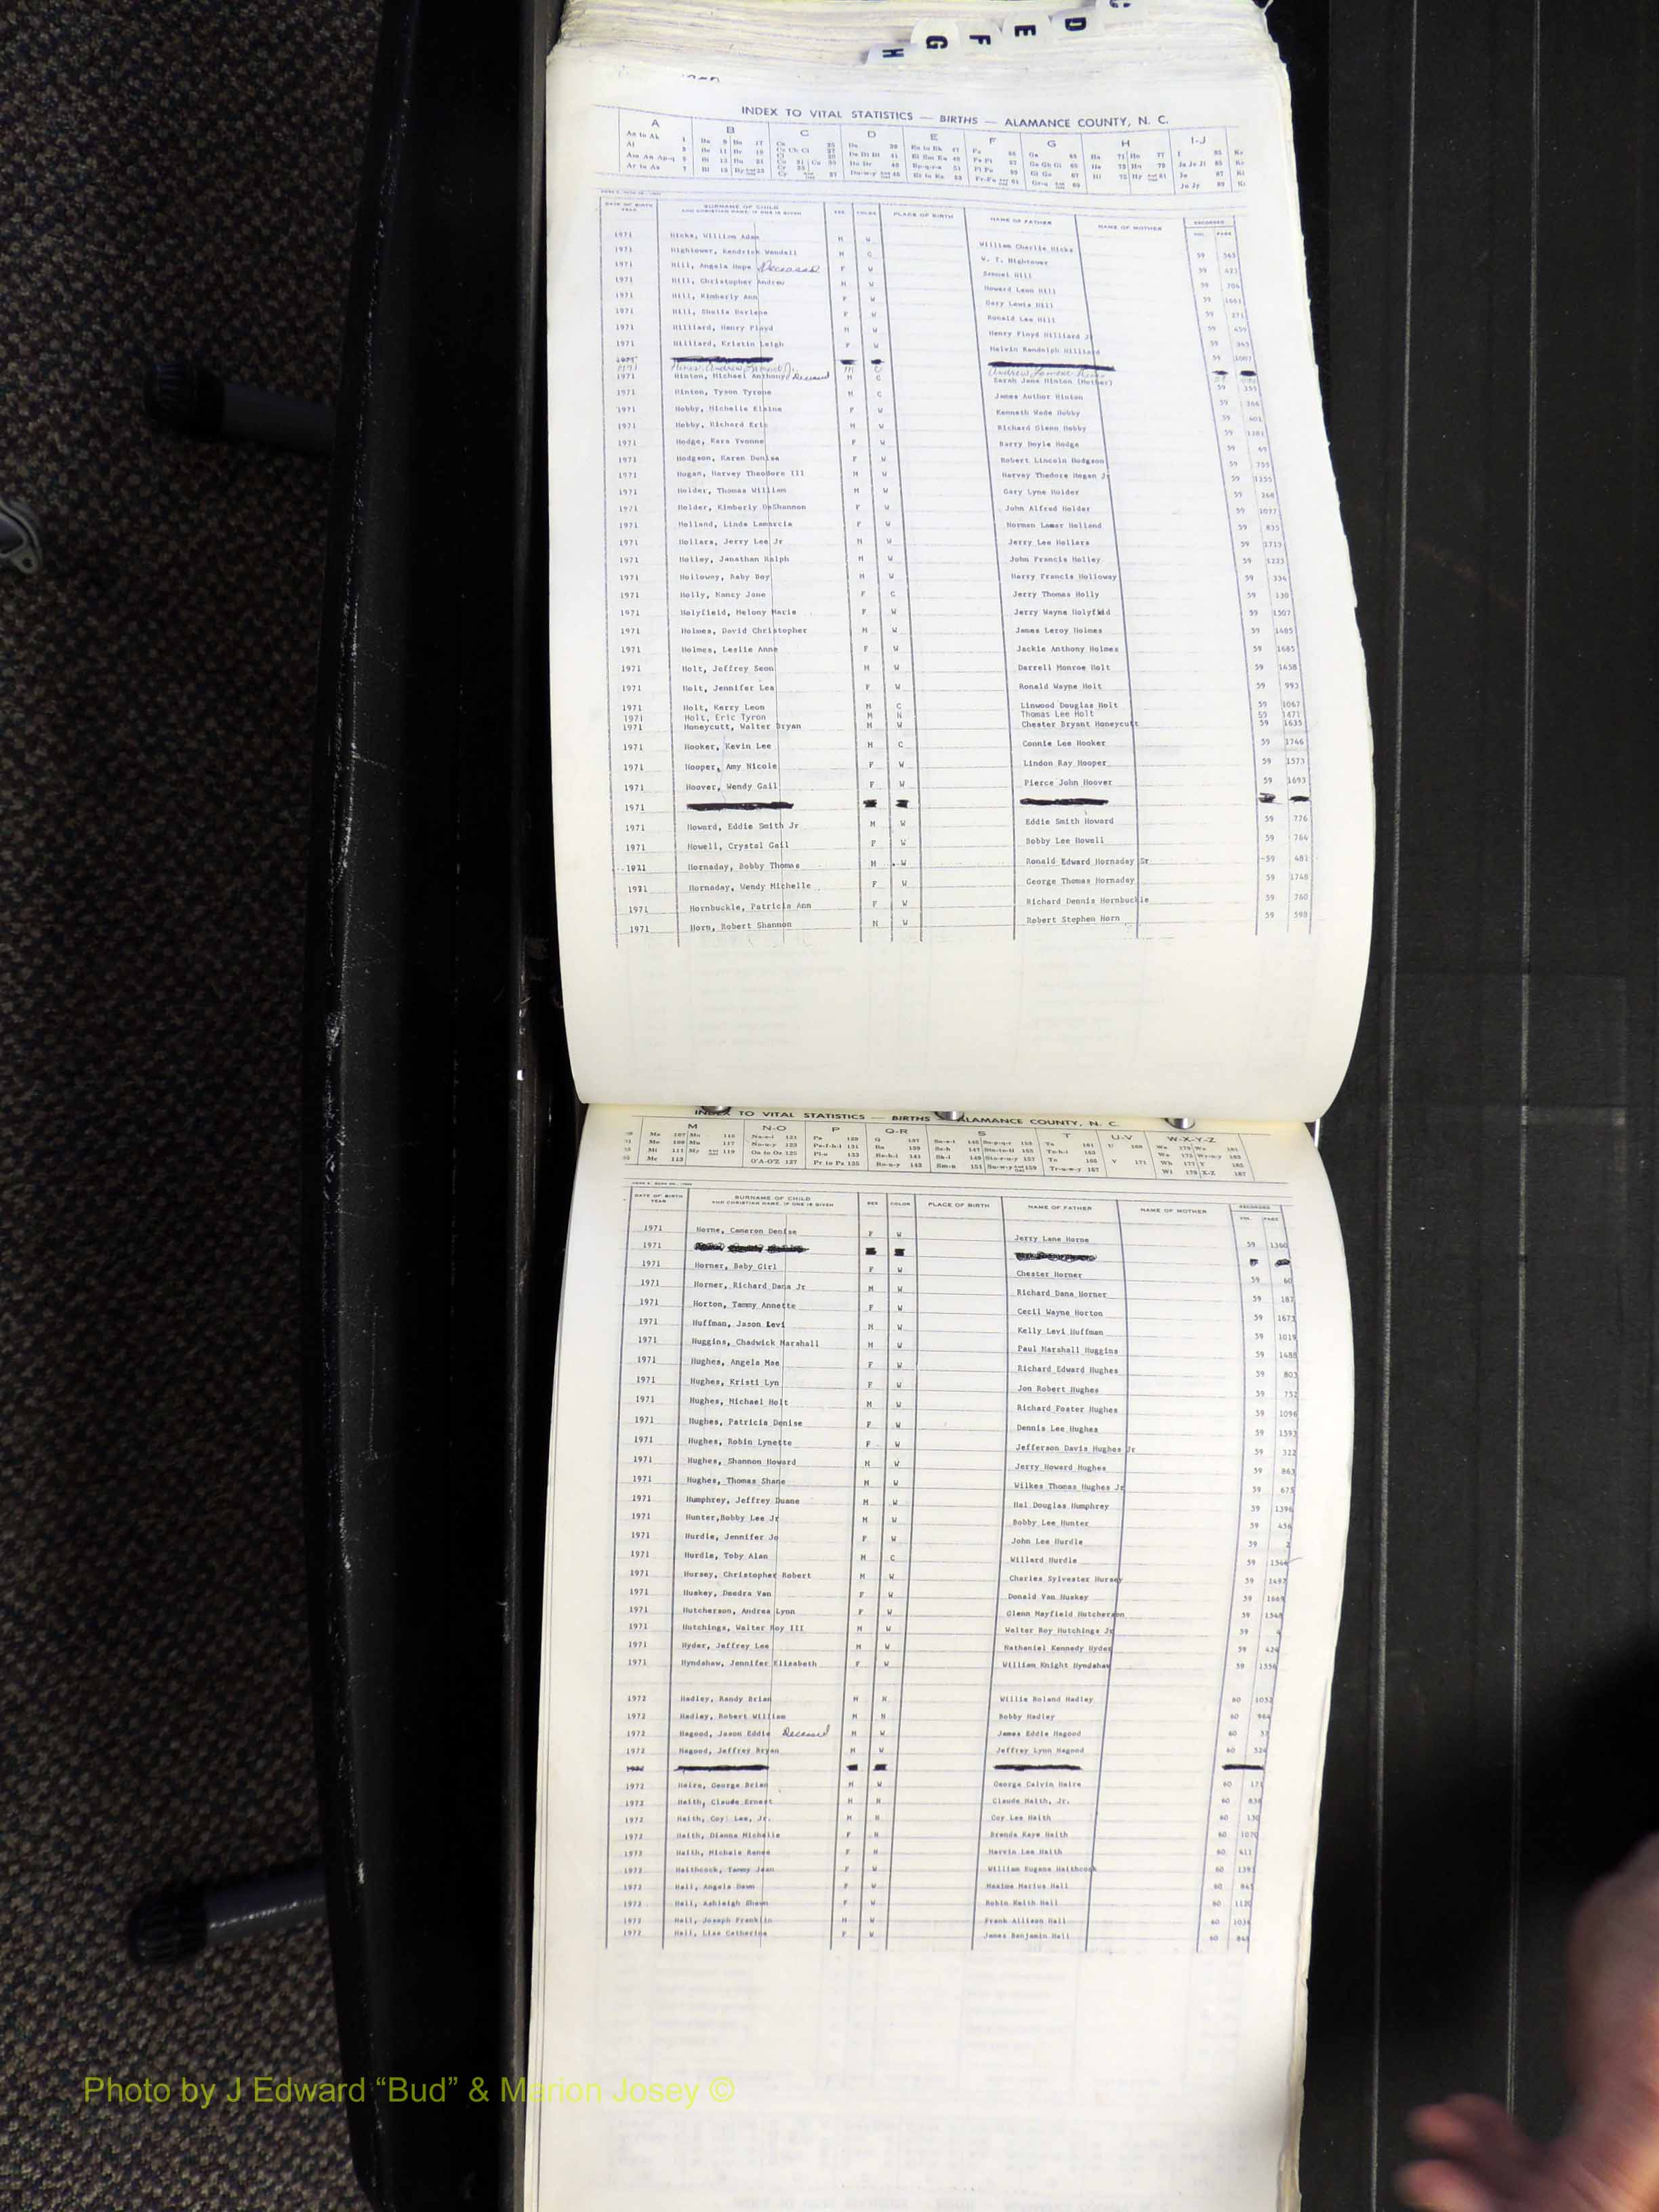 H G F E D
INDEX TO VITAL STATISTICS — BIRTHS — ALAMANCE COUNTY, N. C.
A B C D E F G H I-J
DATE OF BIRTH YEAR SURNAME OF CHILD AND CHRISTIAN NAME, IF ONE IS GIVEN SEX COLOR PLACE OF BIRTH NAME OF FATHER NAME OF MOTHER RECORDED VOL. PAGE
1971 Hicks, William Adam M W William Charlie Hicks 59 565
1971 Hightower, Kendrick Wendell M C W. T. Hightower 59 423
1971 Hill, Angela Hope Deceased F W Samuel Hill 59 706
1971 Hill, Christopher Andrew M W Howard Leon Hill 59 1661
1971 Hill, Kimberly Ann F W Gary Lewis Hill 59 271
1971 Hill, Sheila Darlene F W Ronald Lee Hill 59 459
1971 Hilliard, Henry Floyd M W Henry Floyd Hilliard J 59 365
1971 Hilliard, Kristin Leigh F W Melvin Randolph Hilliard 59 1007
1971 Hines, Andrew Lamont Jr. M C Andrew Lamont Hines
1971 Hinton, Michael Anthony Deceased M C Sarah Jane Hinton (Mother) 59 355
1971 Hinton, Tyson Tyrone M C James Author Hinton 59 366
1971 Hobby, Michelle Elaine F W Kenneth Wade Hobby 59 601
1971 Hobby, Richard Eric M W Richard Glenn Hobby 59 1381
1971 Hodge, Kara Yvonne F W Barry Doyle Hodge 59 69
1971 Hodgson, Karen Denise F W Robert Lincoln Hodgson 59 755
1971 Hogan, Harvey Theodore III M W Harvey Thedore Hogan Jr 59 1355
1971 Holder, Thomas William M W Gary Lyne Holder 59 260
1971 Holder, Kimberly DeShannon F W John Alfred Holder 59 1077
1971 Holland, Linda Lamarcia F W Norman Lamar Holland 59 835
1971 Hollars, Jerry Lee Jr M W Jerry Lee Hollars 59 1713
1971 Holley, Janathan Ralph M W John Francis Holley 59 1223
1971 Holloway, Baby Boy M W Harry Francis Holloway 59 334
1971 Holly, Nancy Jane F C Jerry Thomas Holly 59 130
1971 Holyfield, Melony Marie F W Jerry Wayne Holyfield 59 1507
1971 Holmes, David Christopher M W James Leroy Holmes 59 1405
1971 Holmes, Leslie Anne F W Jackie Anthony Holmes 59 1685
1971 Holt, Jeffrey Seon M W Darrell Monroe Holt 59 1458
1971 Holt, Jennifer Lea F W Ronald Wayne Holt 59 993
1971 Holt, Kerry Leon M C Linwood Douglas Holt 59 1067
1971 Holt, Eric Tyron M N Thomas Lee Holt 59 1471
1971 Honeycutt, Walter Bryan M W Chester Bryant Honeycutt 59 1635
1971 Hooker, Kevin Lee M C Connie Lee Hooker 59 1746
1971 Hooper, Amy Nicole F W Lindon Ray Hooper 59 1573
1971 Hoover, Wendy Gail F W Pierce John Hoover 59 1693
1971
1971 Howard, Eddie Smith Jr M W Eddie Smith Howard 59 776
1971 Howell, Crystal Gail F W Bobby Lee Howell 59 764
1971 Hornaday, Bobby Thomas M W Ronald Edward Hornaday Sr 59 481
1971 Hornaday, Wendy Michelle F W George Thomas Hornaday 59 1748
1971 Hornbuckle, Patricia Ann F W Richard Dennis Hornbuckle 59 760
1971 Horn, Robert Shannon M W Robert Stephen Horn 59 598
INDEX TO VITAL STATISTICS — BIRTHS ALAMANCE COUNTY, N. C.
M N-O P Q-R S T U-V W-X-Y-Z
DATE OF BIRTH YEAR SURNAME OF CHILD AND CHRISTIAN NAME, IF ONE IS GIVEN SEX COLOR PLACE OF BIRTH NAME OF FATHER NAME OF MOTHER RECORDED VOL. PAGE
1971 Horne, Cameron Denise F W Jerry Lane Horne 59 1360
1971
1971 Horner, Baby Girl F W Chester Horner 59 60
1971 Horner, Richard Dana Jr M W Richard Dana Horner 59 187
1971 Horton, Tammy Annette F W Cecil Wayne Horton 59 1673
1971 Huffman, Jason Levi M W Kelly Levi Huffman 59 1019
1971 Huggins, Chadwick Marshall M W Paul Marshall Huggins 59 1488
1971 Hughes, Angela Mae F W Richard Edward Hughes 59 803
1971 Hughes, Kristi Lyn F W Jon Robert Hughes 59 752
1971 Hughes, Michael Holt M W Richard Foster Hughes 59 1096
1971 Hughes, Patricia Denise F W Dennis Lee Hughes 59 1593
1971 Hughes, Robin Lynette F W Jefferson Davis Hughes Jr 59 322
1971 Hughes, Shannon Howard M W Jerry Howard Hughes 59 863
1971 Hughes, Thomas Shane M W Wilkes Thomas Hughes Jr 59 675
1971 Humphrey, Jeffrey Duane M W Hal Douglas Humphrey 59 1396
1971 Hunter,Bobby Lee Jr M W Bobby Lee Hunter 59 456
1971 Hurdle, Jennifer Jo F W John Lee Hurdle 59 2
1971 Hurdle, Toby Alan M C Willard Hurdle 59 1546
1971 Hursey, Christopher Robert M W Charles Sylvester Hursey 59 1492
1971 Huskey, Deedra Van F W Donald Van Huskey 59 1669
1971 Hutcherson, Andrea Lynn F W Glenn Mayfield Hutcherson 59 1548
1971 Hutchings, Walter Roy III M W Walter Roy Hutchings Jr 59
1971 Hyder, Jeffrey Lee M W Nathaniel Kennedy Hyder 59 424
1971 Hyndshaw, Jennifer Elizabeth F W William Knight Hyndshaw 59 1356
1972 Hadley, Randy Brian M N Willie Roland Hadley 60 1032
1972 Hadley, Robert William M N Bobby Hadley 60 964
1972 Hagood, Jason Eddie Deceased M W James Eddie Hagood 60 57
1972 Hagood, Jeffrey Bryan M W Jeffrey Lynn Hagood 60 324
1972
1972 Haire, George Brian M W George Calvin Haire 60 171
1972 Haith, Claude Ernest M N Claude Haith, Jr. 60 838
1972 Haith, Coy Lee, Jr. M N Coy Lee Haith 60 130
1972 Haith, Dianna Michelle F N Brenda Kaye Haith 60 1070
1972 Haith, Michele Renee F N Marvin Lee Haith 60 411
1972 Haithcock, Tammy Jean F W William Eugene Haithcock 60 1393
1972 Hall, Angela Dawn F W Maxine Marius Hall 60 845
1972 Hall, Ashleigh Shawn F W Robin Keith Hall 60 1120
1972 Hall, Joseph Franklin M W Frank Allison Hall 60 1034
1972 Hall, Lisa Catherine F W James Benjamin Hall 60 848
Photo by J Edward “Bud” & Marion Josey ©